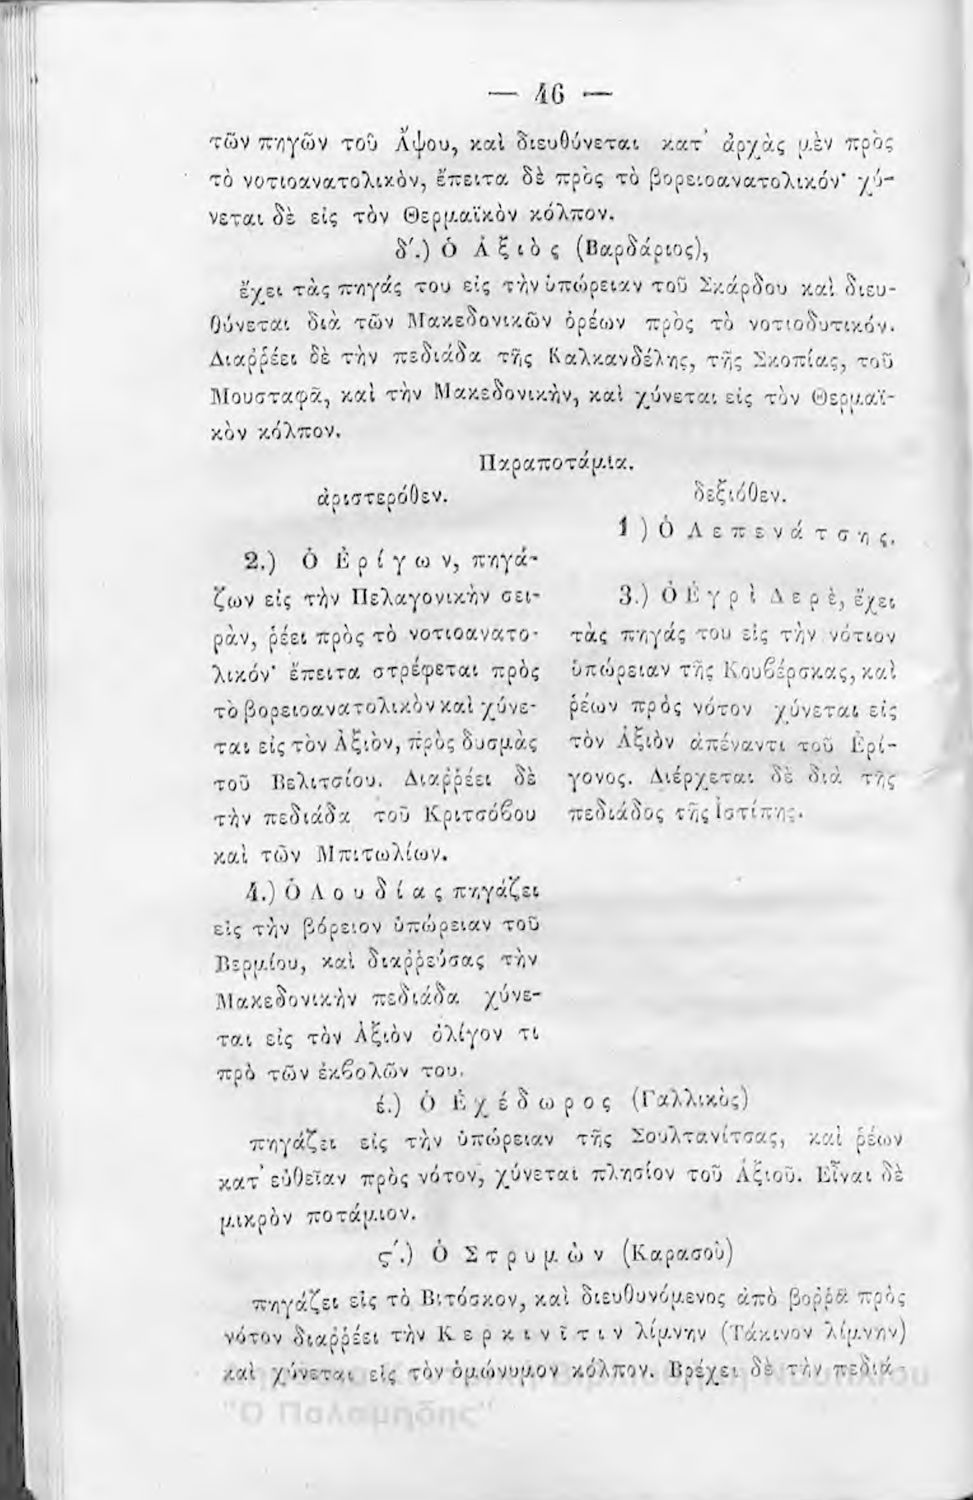 — 46 —
τῶν πηγῶν τοῦ Ἄψου, καὶ διευθύνεται κατ᾽ ἀρχὰς μὲν πρὸς
τὸ νοτιοανατολικὸν, ἔπειτα δὲ πρὸς τὸ βορειοανατολικόν· χύ-
νεται δὲ εἰς τὸν Θερμαϊκὸν κόλπον.
δ΄.) Ὁ Ἀξιὸς (Βαρδάριος),
ἔχει τὰς πηγάς του εἰς τὴν ὑπώρειαν τοῦ Σκάρδου καὶ διευ-
θύνεται διὰ τῶν Μακεδονικῶν ὀρέων πρὸς τὸ νοτιοδυτικόν.
Διαῤῥέει δὲ τὴν πεδιάδα τῆς Καλκανδέλης, τῆς Σκοπίας, τοῦ
Μουσταφᾶ, καὶ τὴν Μακεδονικὴν, καὶ χύνεται εἰς τὸν Θερμαϊ-
κὸν κόλπον.
Παραποτάμια.
ἀριστερόθεν.
2.) Ὁ Ἐρίγων, πηγά-
ζων εἰς τὴν Πελαγονικὴν σει-
ρὰν, ῥέει πρὸς τὸ νοτιοανατο-
λικόν· ἔπειτα στρέφεται πρὸς
τὸ βορειοανατολικὸν καὶ χύνε-
ται εἰς τὸν Ἀξιὸν, πρὸς δυσμὰς
τοῦ Βελιτσίου. Διαῤῥέει δὲ
τὴν πεδιάδα τοῦ Κριτσόβου
καὶ τῶν Μπιτωλίων.
4.) Ὁ Λουδίας πηγάζει
εἰς τὴν βόρειον ὑπώρειαν τοῦ
Βερμίου, καὶ διαῤῥεύσας τὴν
Μακεδονικὴν πεδιάδα χύνε-
ται εἰς τὸν Ἀξιὸν ὀλίγον τι
πρὸ τῶν ἐκβολῶν του.
δεξιόθεν.
1) Ὁ Λεπενάτσης.
3.) Ὁ Ἐγρὶ Δερὲ, ἔχει
τὰς πηγάς του εἰς τὴν νότιον
ὑπώρειαν τῆς Κουβέρσκας, καὶ
ῥέων πρὸς νότον χύνεται εἰς
τὸν Ἀξιὸν ἀπέναντι τοῦ Ἐρί-
γονος. Διέρχεται δὲ διὰ τῆς
πεδιάδος τῆς Ἰστίπης.
έ.) Ὁ Ἐχέδωρος (Γαλλικὸς)
πηγάζει εἰς τὴν ὑπώρειαν τῆς Σουλτανίτσας, καὶ ῥέων
κατ᾽ εὐθεῖαν πρὸς νότον, χύνεται πλησίον τοῦ Ἀξιοῦ. Εἶναι δὲ
μικρὸν ποτάμιον.
ς΄.) Ὁ Στρυμὼν (Καρασοὺ)
πηγάζει εἰς τὸ Βιτόσκον, καὶ διευθυνόμενος ἀπὸ βοῤῥᾶ πρὸς
νότον διαῤῥέει τὴν Κερκινῖτιν λίμνην (Τάκινον λίμνην)
καὶ χύνεται εἰς τὸν ὁμώνυμον κόλπον. Βρέχει δὲ τὴν πεδιά-
"Ο Παλαμήδης"